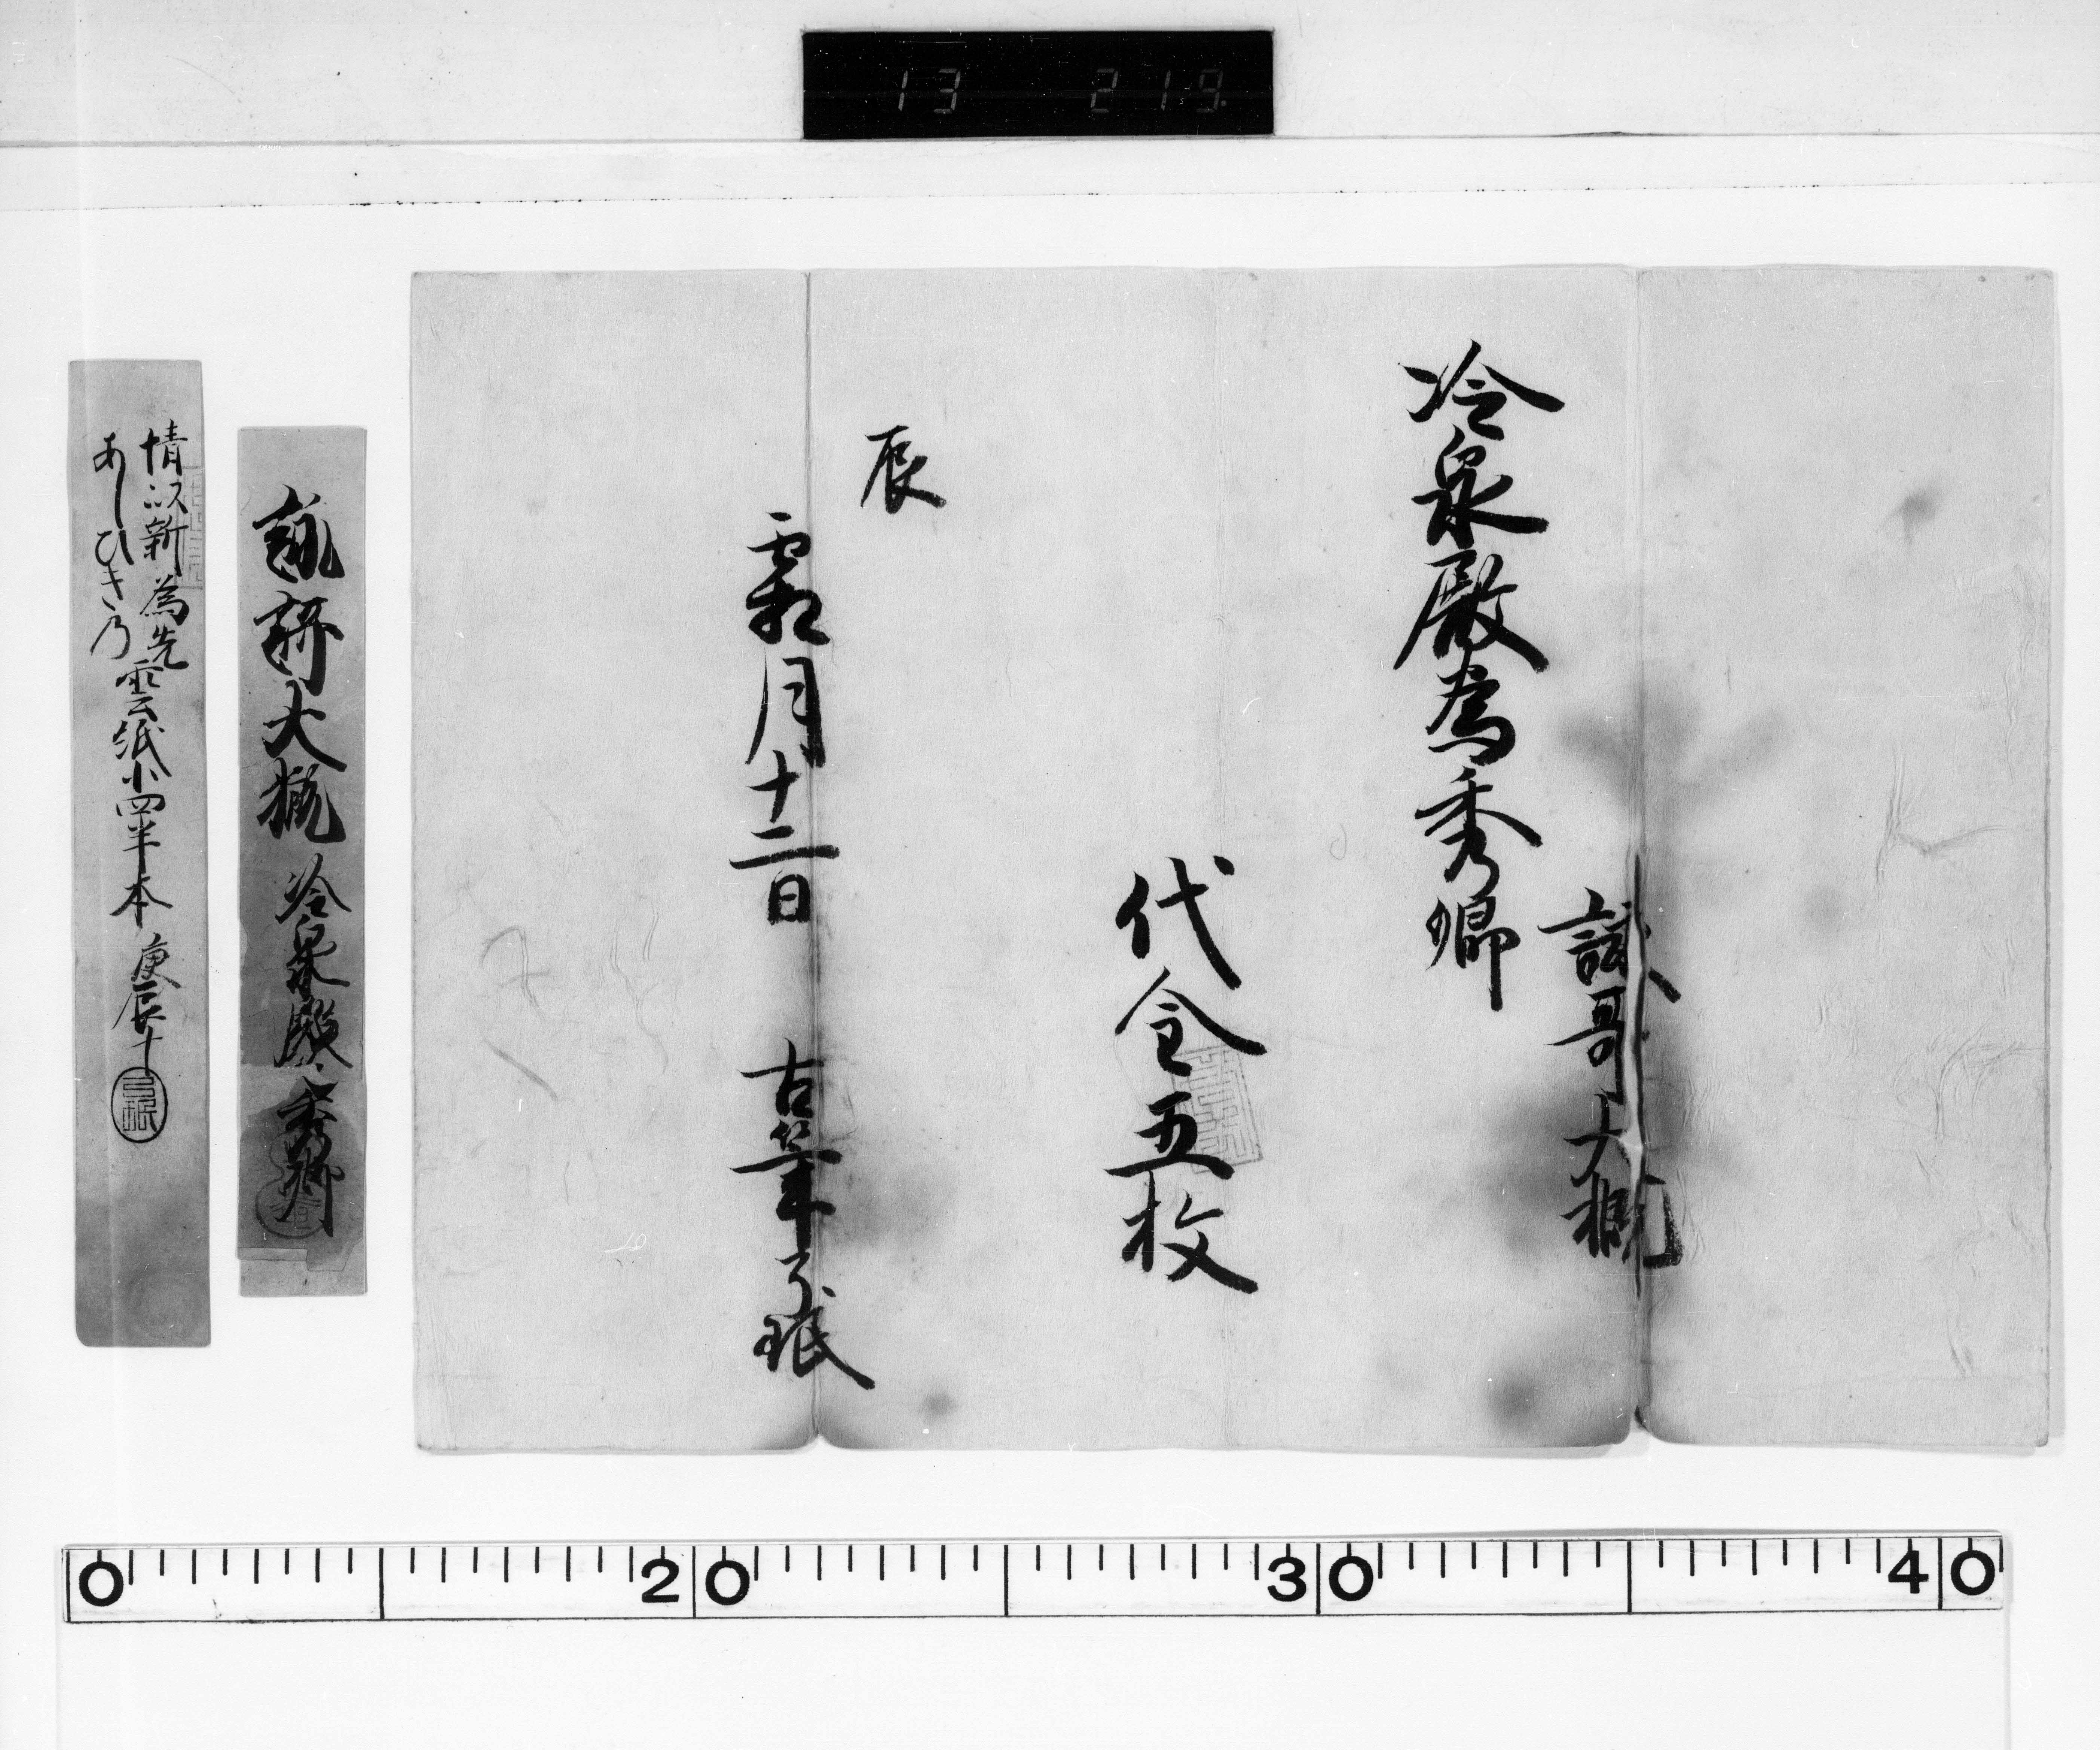 13 219
冷泉殿為秀卿
詠哥大概
代金五枚
辰
霜月十二日 古筆了珉
詠謌大概 冷泉殿為秀卿
情以新為先
あしひき乃
雲紙小四半本 庚辰十
0 20 30 40